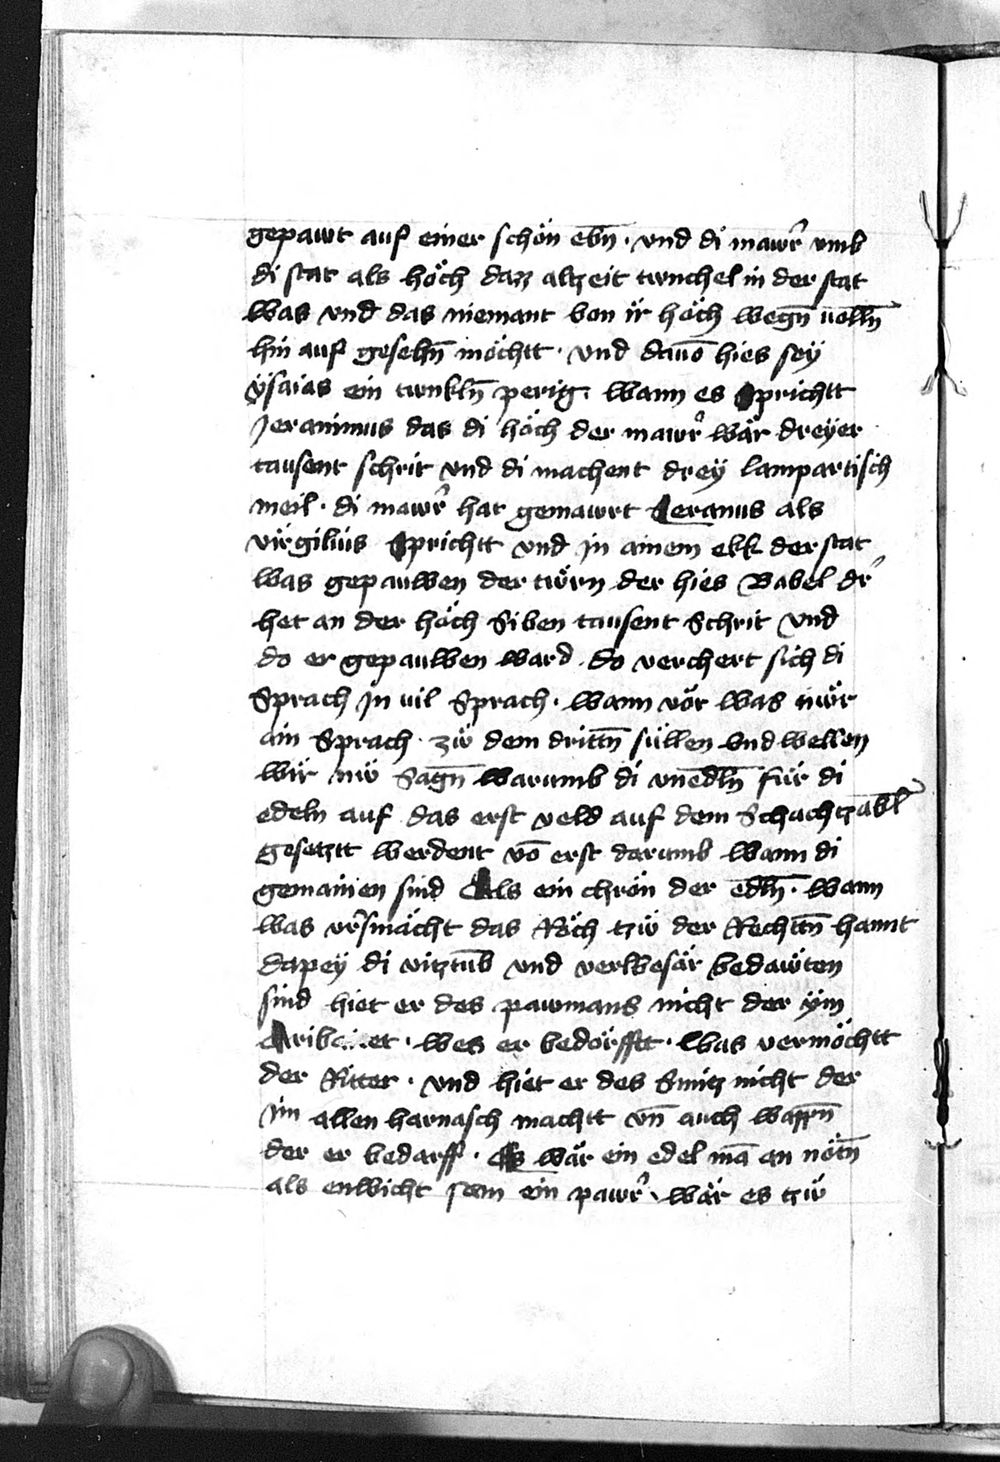 gepawt auf einer schön ebn̄ · vnd di mawr̉ vmb
di stat als höch daz altzeit tunchel in der stat
was vnd das niemant von ir höch wegn̄ volln̄
hin auf gesehn̄ möchtt · vnd dauō hies sey
ÿsaias ein tunkln̄ perig · wann es sprichtt
Jeranimus das di höch der mawr̉ wär dreyer
tausent schrit vnd di machent drey lampartisch
meil · di mawr̉ hat gemawrt Leranus als
virgilius sprichtt vnd in ainem ekk der stat
was gepauwen der türn der hies Babel dr̉
het an der höch Siben tausent Schrit vnd
do er gepauwen ward · do verchert sich di
Sprach jn vil Sprach · wann vör was nür
ain Sprach · zü dem dritn̄ süllen vnd wellen
wir nü Sagn̄ warumb di vnedln̄ für di
edeln auf das erst veld auf dem Schachzabl
gesetztt werdent vō erst darumb wann di
gemainen sind Als ein chrön der edln̄ · wann
was vr̉smächt das Röch tzü der Rechttn̄ hannt
dapey di vitztūb vnd verwesär bedawten
sind hiet er des pawmans nicht der ÿm
· wes er bedörfftt · was vermöchtt
der Ritter · vnd hiet er des Smitz nicht der
im allen harnasch machtt vn̄ auch wappn̄
der er bedarff · Es wär ein edel mā an nötn̄
als enwicht sam ein pawr̉ · wär es tzü